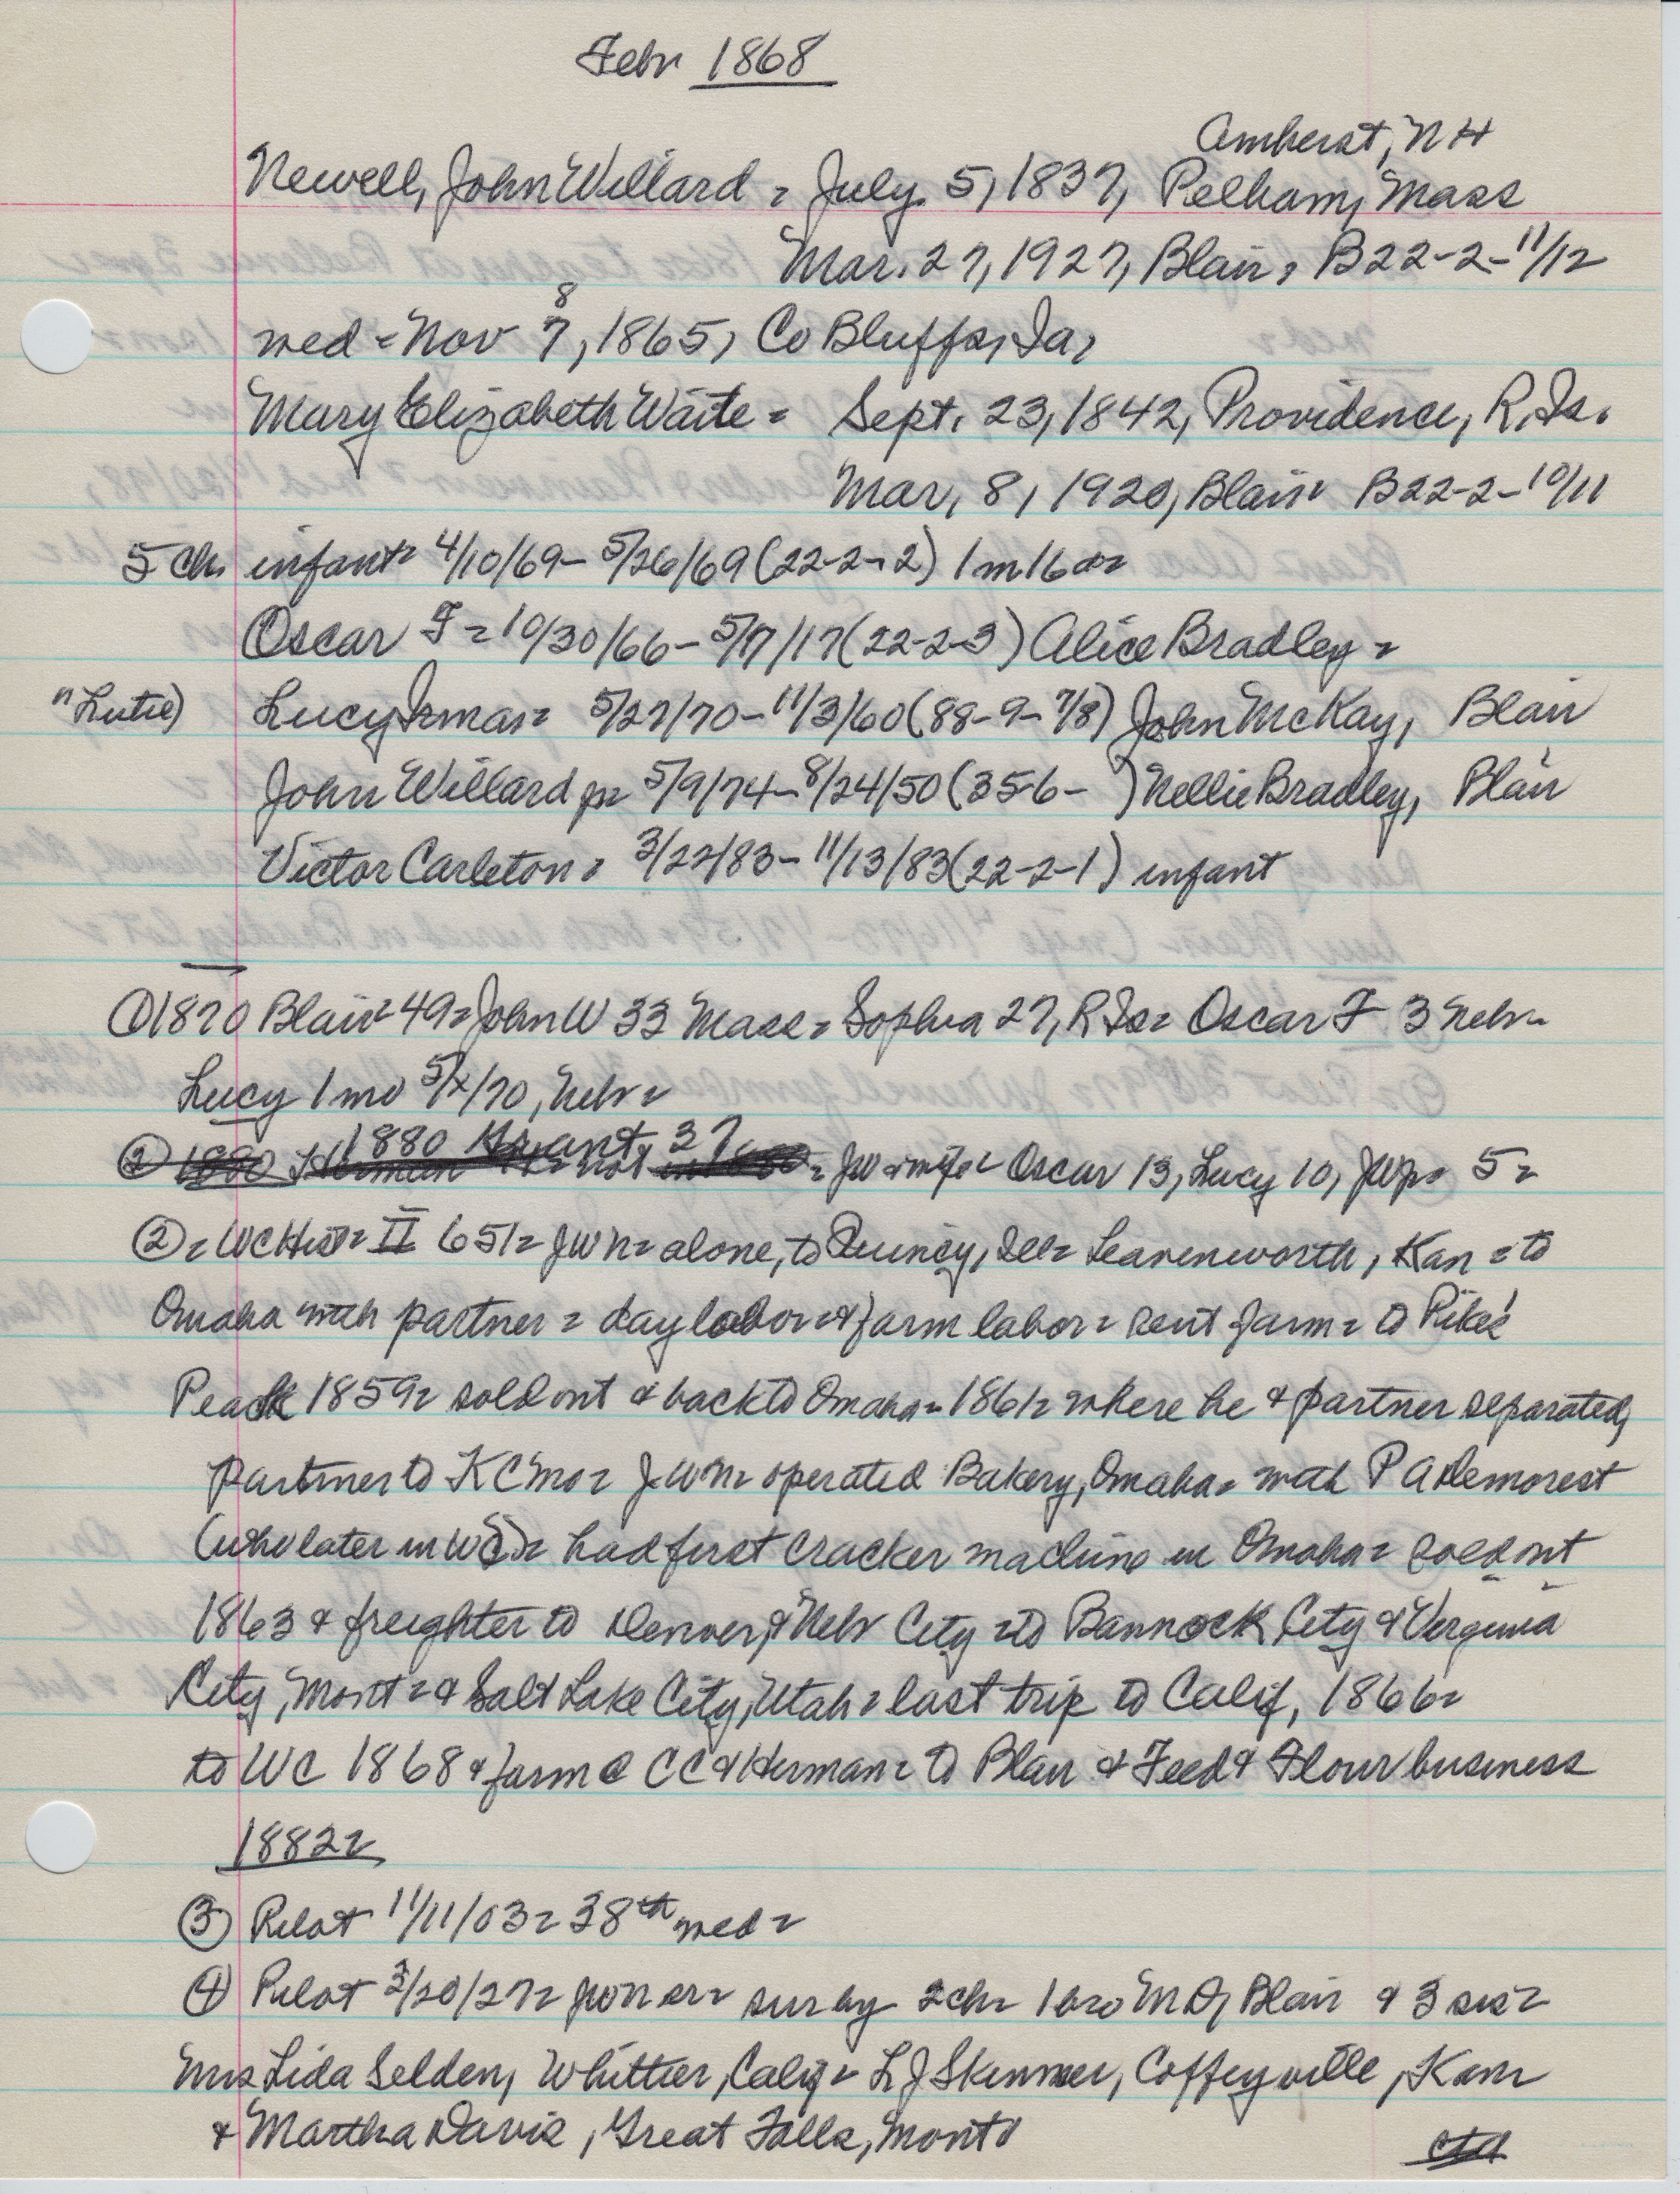 Febr 1868
Amherst, NH
Newell, John Willard = July 5, 1837, Pelham, Mass
Mar. 27, 1927, Blair, B22-2-11/12
8
wed = Nov 7, 1865, Co Bluffs, Ia,
Mary Elizabeth Waite = Sept. 23, 1842, Providence, R. Is.
Mar, 8, 1920, Blair = B22-2-10/11
5 Ch, infant = 4/10/69 - 5/26/69 (22-2-2) 1 m 16 da =
Oscar F = 10/30/66 - 5/7/17 (22-2-3) Alice Bradley =
"Lutie) Lucy Irma = 5/27/70 - 11/3/60 (88-9-7/8) John McKay, Blair
John Willard jr = 5/9/74 - 8/24/50 (35-6- ) Nellie Bradley, Blair
Victor Carleton = 3/22/83 - 11/13/83 (22-2-1) infant
① 1870 Blair = 49 = John W 33 Mass = Sophia 27, R Is = Oscar F 3 Nebr =
Lucy 1 mo 5/x/70, Nebr =
1880 Grant 37
② = JW = wife = Oscar 13, Lucy 10, JW jr = 5 =
② = WC Hist = II 651 = JWN = alone, to Quincy, Ill = Leavenworth, Kan = to
Omaha with partner = day labor = & farm labor = rent farm = to Pike's
Peak 1859 = sold out & back to Omaha = 1861 = where he & partner separated,
partner to KC Mo = JWN = operated Bakery, Omaha = with P A Demorest
(who later in WC) = had first cracker machine in Omaha = sold out
1863 & freighter to Denver, & Nebr City = to Bannock City & Virginia
City, Mont = & Salt Lake City, Utah = last trip to Calif, 1866 =
to WC 1868 & farm @ CC & Herman = to Blair & Feed & Flour business
1882 =
③ Pilot 11/11/03 = 38th wed =
④ Pilot 3/20/27 = JWN sr = sur by 2 ch = 1 bro M D, Blair & 3 sis =
Mrs Lida Selden, Whittier, Calif = L J Skinner, Coffeyville, Kan =
& Martha Davis, Great Falls, Mont =
ctd